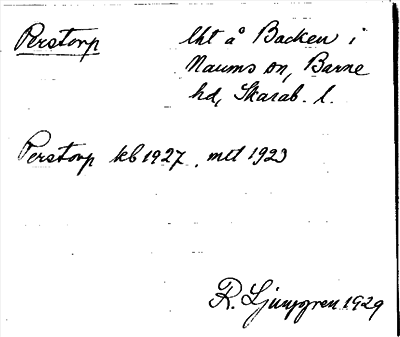 Perstorp lht å Backen i
Naums sn, Barne
hd, Skarab. l.
Perstorp kb 1927, mtl 1923
R. Ljunggren 1929